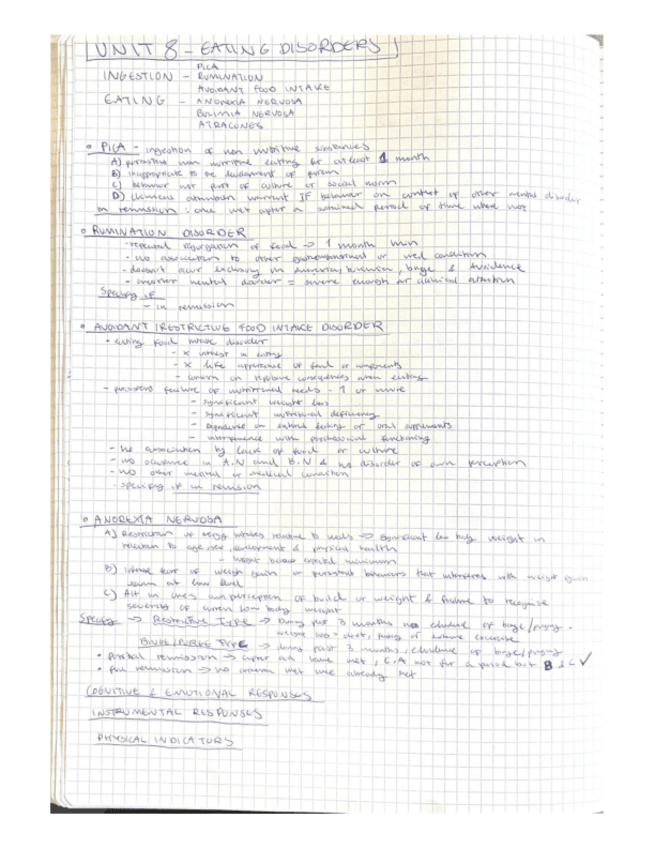 UNIT 8 - EATING DISORDERS
PICA
INGESTION - RUMINATION
AVOIDANT FOOD INTAKE
EATING - ANOREXIA NERVOSA
BULIMIA NERVOSA
ATRACONES
PICA - ingestion of non nutritive substances
A) persistent non nutritive eating for at least 1 month
B) inappropriate to the development of person
C) behavior not part of culture or social norm
D) clinical attention warrant IF behavior on context of other mental disorder
in remission: once met after a sustained period of time where not
RUMINATION DISORDER
- repeated regurgitation of food -> 1 month min
- no association to other gastrointestinal or med condition
- doesn't occur exclusivy in Anorexia, bulimia, binge & Avoidance
- another mental disorder = severe enough for clinical attention
Specify if
- in remission
AVOIDANT / RESTRICTIVE FOOD INTAKE DISORDER
- eating food intake disorder
- x interest in eating
- x like apperance of food or components
- concern on consequences when eating
- persistent failure of nutritional needs - 1 or more
- significant weight loss
- significant nutritional deficiency
- dependence on enteral feeding or oral supplements
- interference with psychosocial functioning
- no association by lack of food or culture
- no occurence in A.N and B.N & no disorder of own perception
- no other mental or medical condition
- specifiy if in remision
ANOREXIA NERVOSA
A) Restriction of energy intakes relative to needs -> significant low body weight in
relation to age, sex, development & physical health
- weight below minimum
B) Intense fear of weigh gain or persistent behaviors that interferes with weight gain
even at low level
C) Alt in ones own perception of build or weight & failure to recognise
severity of curren low body weight
Specify -> Restrictive Type -> During past 3 months no of binge/purging.
weight loss = diet, fasting or exercise
BINGE/PURGE TYPE -> during past 3 months, of binge/purging
• Partial remission -> after all have met, C.A not for a period but B & C ✓
• full remission -> no criteria met once already met
COGNITIVE & EMOTIONAL RESPONSES
INSTRUMENTAL RESPONSES
PHYSICAL INDICATORS